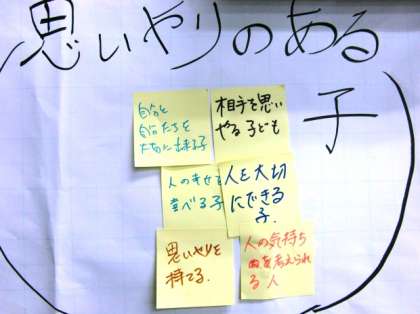 思いやりのある
子
自分と
自分たちを
大切に出来る子
相手を思い
やる子ども
人の幸せを
喜べる子
人を大切
にできる
子.
思いやりを
持てる.
人の気持ち
を考えられ
る人